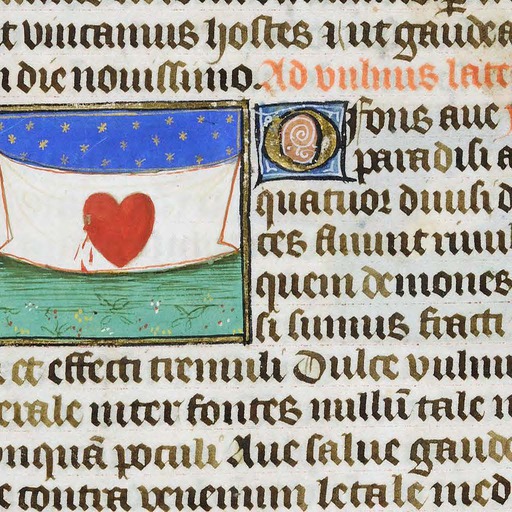 t vincamus hostes Ut gaudea
n die nouissimo. Ad vulnus late
O fons aue
paradisi a
quatuor diuisi d
tes fluunt riuul
quem demones
si sumus fracti
et effecti tremuli Dulce vulnu
erale inter fontes nullū tale n
nquā poculi Aue salue gaude
contra venenum letale med